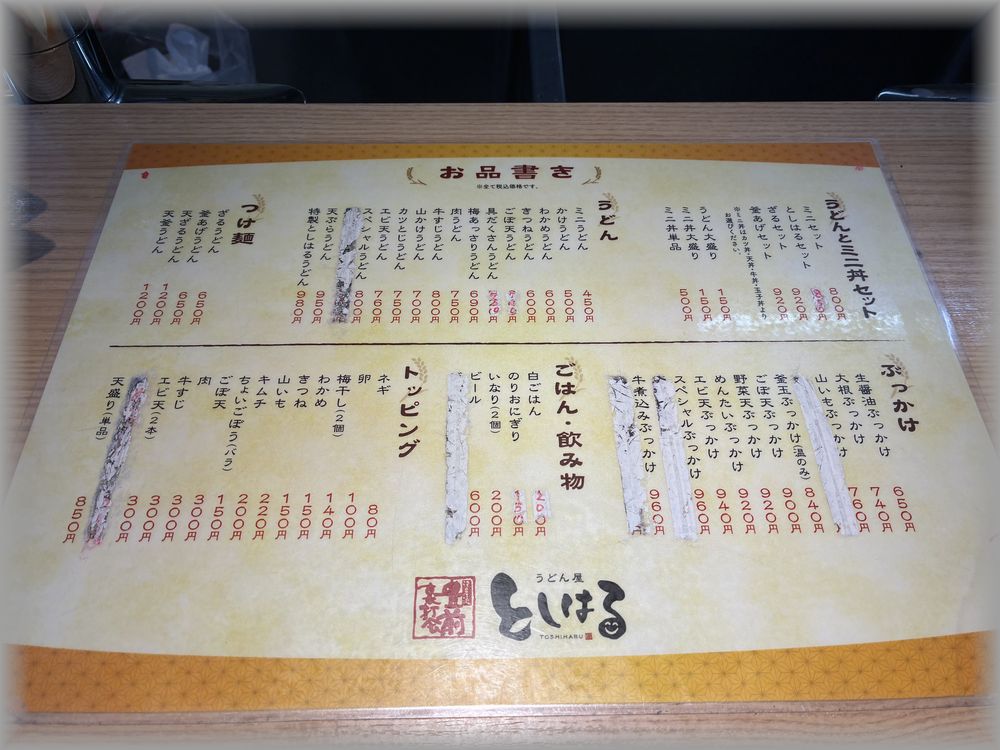 お品書き
※全て税込価格です。
うどんとミニ丼セット
ミニセット 800円
としはるセット
ざるセット 920円
釜あげセット 920円
※ミニ丼はカツ丼・天丼・牛丼・玉子丼より
お選びください。
うどん大盛り 150円
ミニ丼大盛り 150円
ミニ丼単品 500円
うどん
ミニうどん 450円
かけうどん 500円
わかめうどん 600円
きつねうどん 600円
ごぼ天うどん
具だくさんうどん
梅あっさりうどん 650円
肉うどん 750円
牛すじうどん 800円
山かけうどん 700円
カツとじうどん 750円
エビ天うどん 760円
スペシャルうどん 800円
天ぷらうどん 950円
特製としはるうどん 980円
つけ麺
ざるうどん 650円
釜あげうどん 650円
天ざるうどん 1200円
天釜うどん 1200円
ぶっかけ
生醤油ぶっかけ 650円
大根ぶっかけ 740円
山いもぶっかけ 760円
釜玉ぶっかけ(温のみ) 840円
ごぼ天ぶっかけ 900円
野菜天ぶっかけ 920円
めんたいぶっかけ 920円
エビ天ぶっかけ 940円
スペシャルぶっかけ 960円
牛煮込みぶっかけ 960円
ごはん・飲み物
白ごはん 200円
のりおにぎり 150円
いなり(2個) 200円
ビール 600円
トッピング
ネギ 80円
卵 100円
梅干し(2個) 140円
わかめ 150円
きつね 150円
山いも 220円
キムチ 200円
ちょいごぼう(バラ) 150円
ごぼ天 300円
肉 300円
牛すじ 300円
エビ天(2本) 300円
天盛り(単品) 850円
うどん屋
としはる
TOSHIHARU
豊前
裏打会